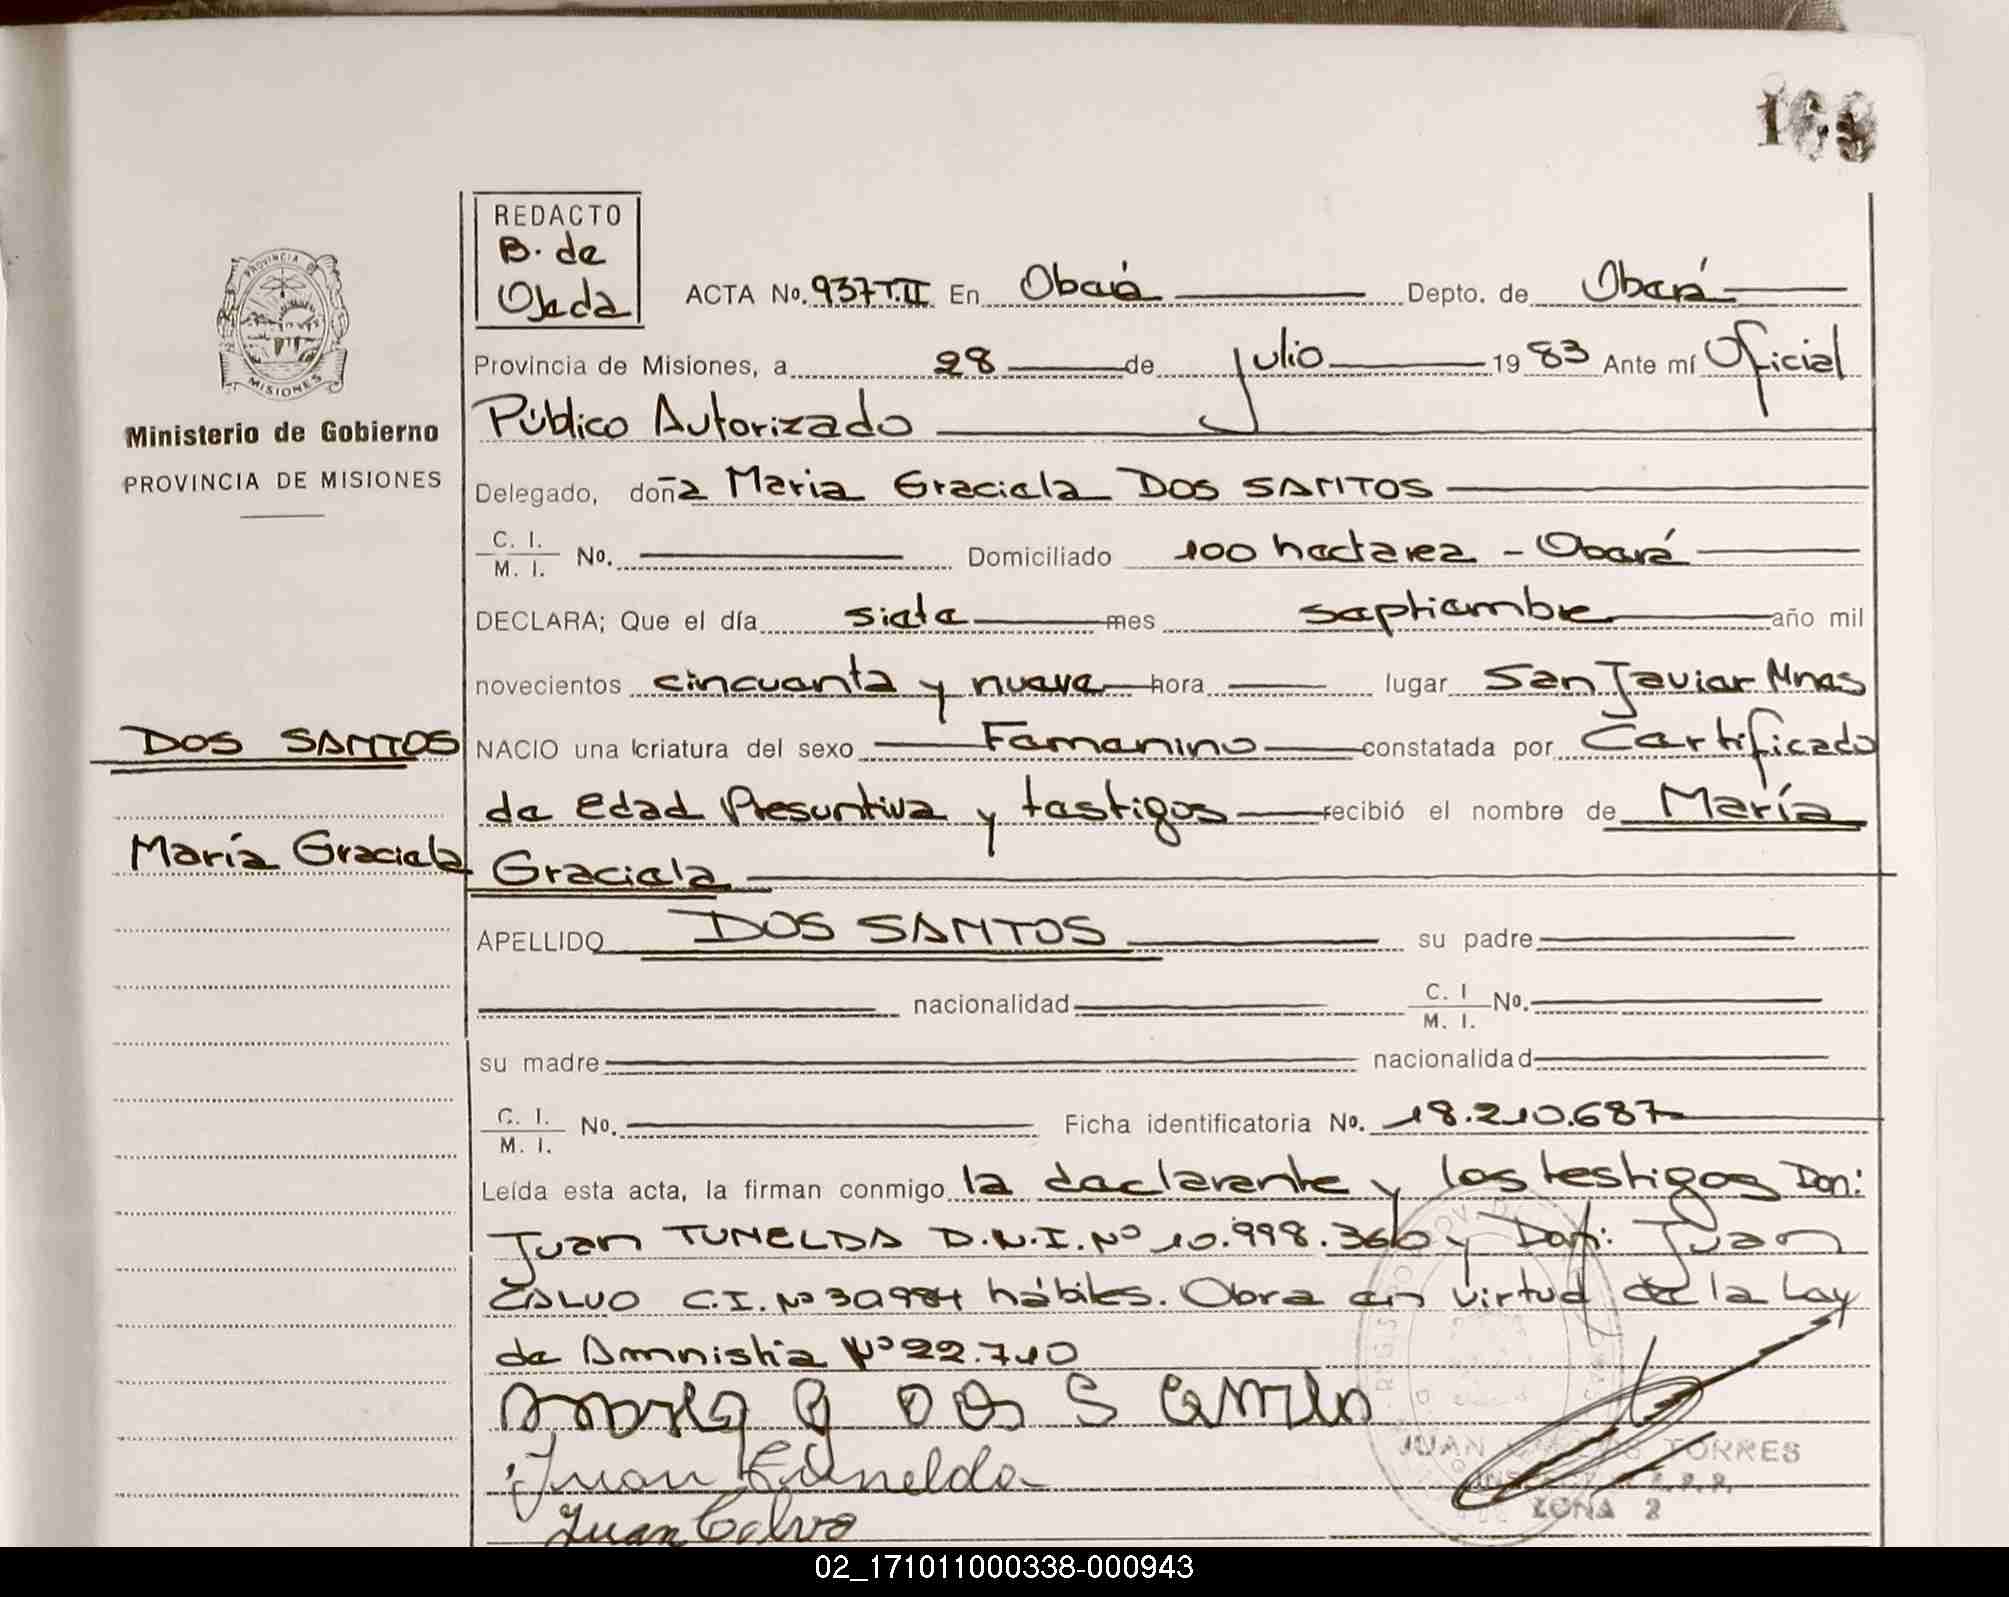 REDACTO
B. de
Ojeda
ACTA No. 937 T.II En Oberá Depto. de Oberá
PROVINCIA DE
MISIONES
Provincia de Misiones, a 28 de julio 1983 Ante mí Oficial
Público Autorizado
Ministerio de Gobierno
PROVINCIA DE MISIONES
Delegado, doña Maria Graciela DOS SANTOS
C. I.
M. I. No. Domiciliado 100 hectarea - Oberá
DECLARA; Que el día siete mes septiembre año mil
novecientos cincuenta y nueve hora lugar San Javier Mnes
DOS SANTOS
NACIO una criatura del sexo Femenino constatada por Certificado
de Edad Presuntiva y testigos recibió el nombre de María
María Graciela
Graciela
APELLIDO DOS SANTOS su padre
nacionalidad C. I
M. I. No.
su madre nacionalidad
C. I.
M. I. No. Ficha identificatoria No. 18.210.687
Leída esta acta, la firman conmigo la declarante y los testigos Don:
Juan TUNELDA D.N.I. Nº 10.998.366 y Don: Juan
CALVO C.I. Nº 30984 hábiles. Obra en virtud de la Ley
de Amnistia Nº 22.710
Juan
Juan Calvo
JUAN TORRES
ZONA 2
02_171011000338-000943